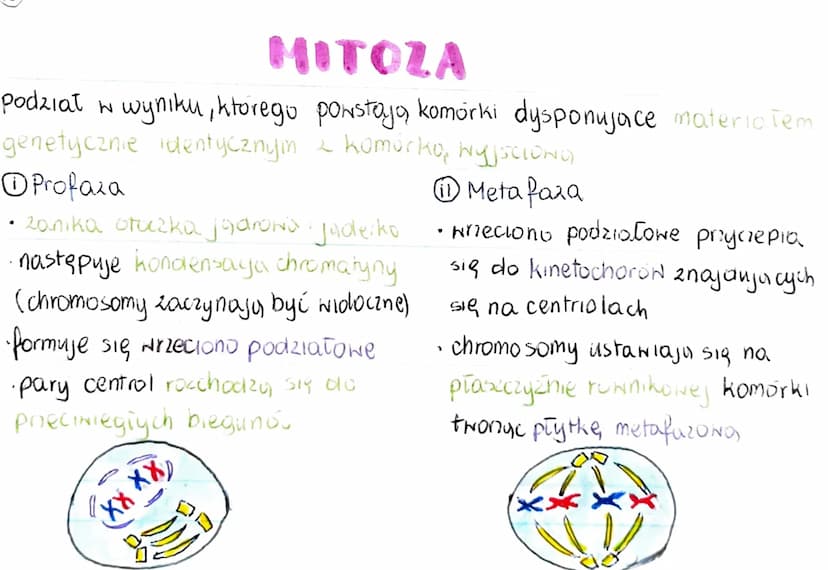 MITOZA
podział w wyniku, którego powstają komórki dysponujące materiałem
genetycznie identycznym z komórką wyjściową
I Profaza
• zanika otoczka jądrowa i jąderko
• następuje kondensacja chromatyny
(chromosomy zaczynają być widoczne)
• formuje się wrzeciono podziałowe
• pary centrol rozchodzą się do
przeciwległych biegunów
II Metafaza
• wrzeciono podziałowe przyczepia
się do kinetochorów znajdujących
się na centriolach
• chromosomy ustawiają się na
płaszczyźnie równikowej komórki
tworząc płytkę metafazową